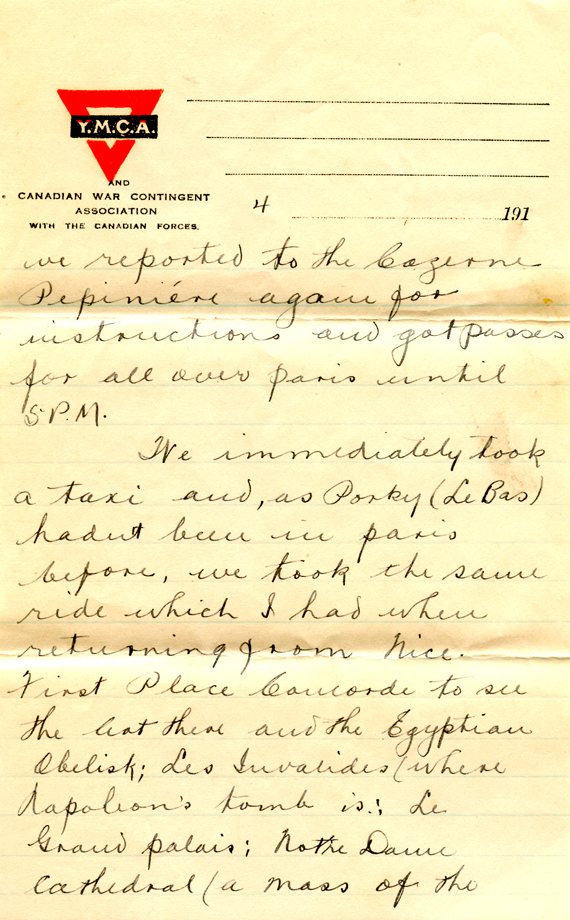 Y.M.C.A.
AND
CANADIAN WAR CONTINGENT
ASSOCIATION
WITH THE CANADIAN FORCES.
4 191
we reported to the Cazerne
Pepiniére again for
instructions and got passes
for all over paris until
5 P.M.
We immediately took
a taxi and, as Porky (Le Bas)
hadnt been in paris
before, we took the same
ride which I had when
returning from Nice.
First Place Concorde to see
the there and the Egyptian
Obelisk; Les Invalides (where
Napoleon's tomb is.; Le
Grand palais; Notre Dame
Cathedral (a mass of the